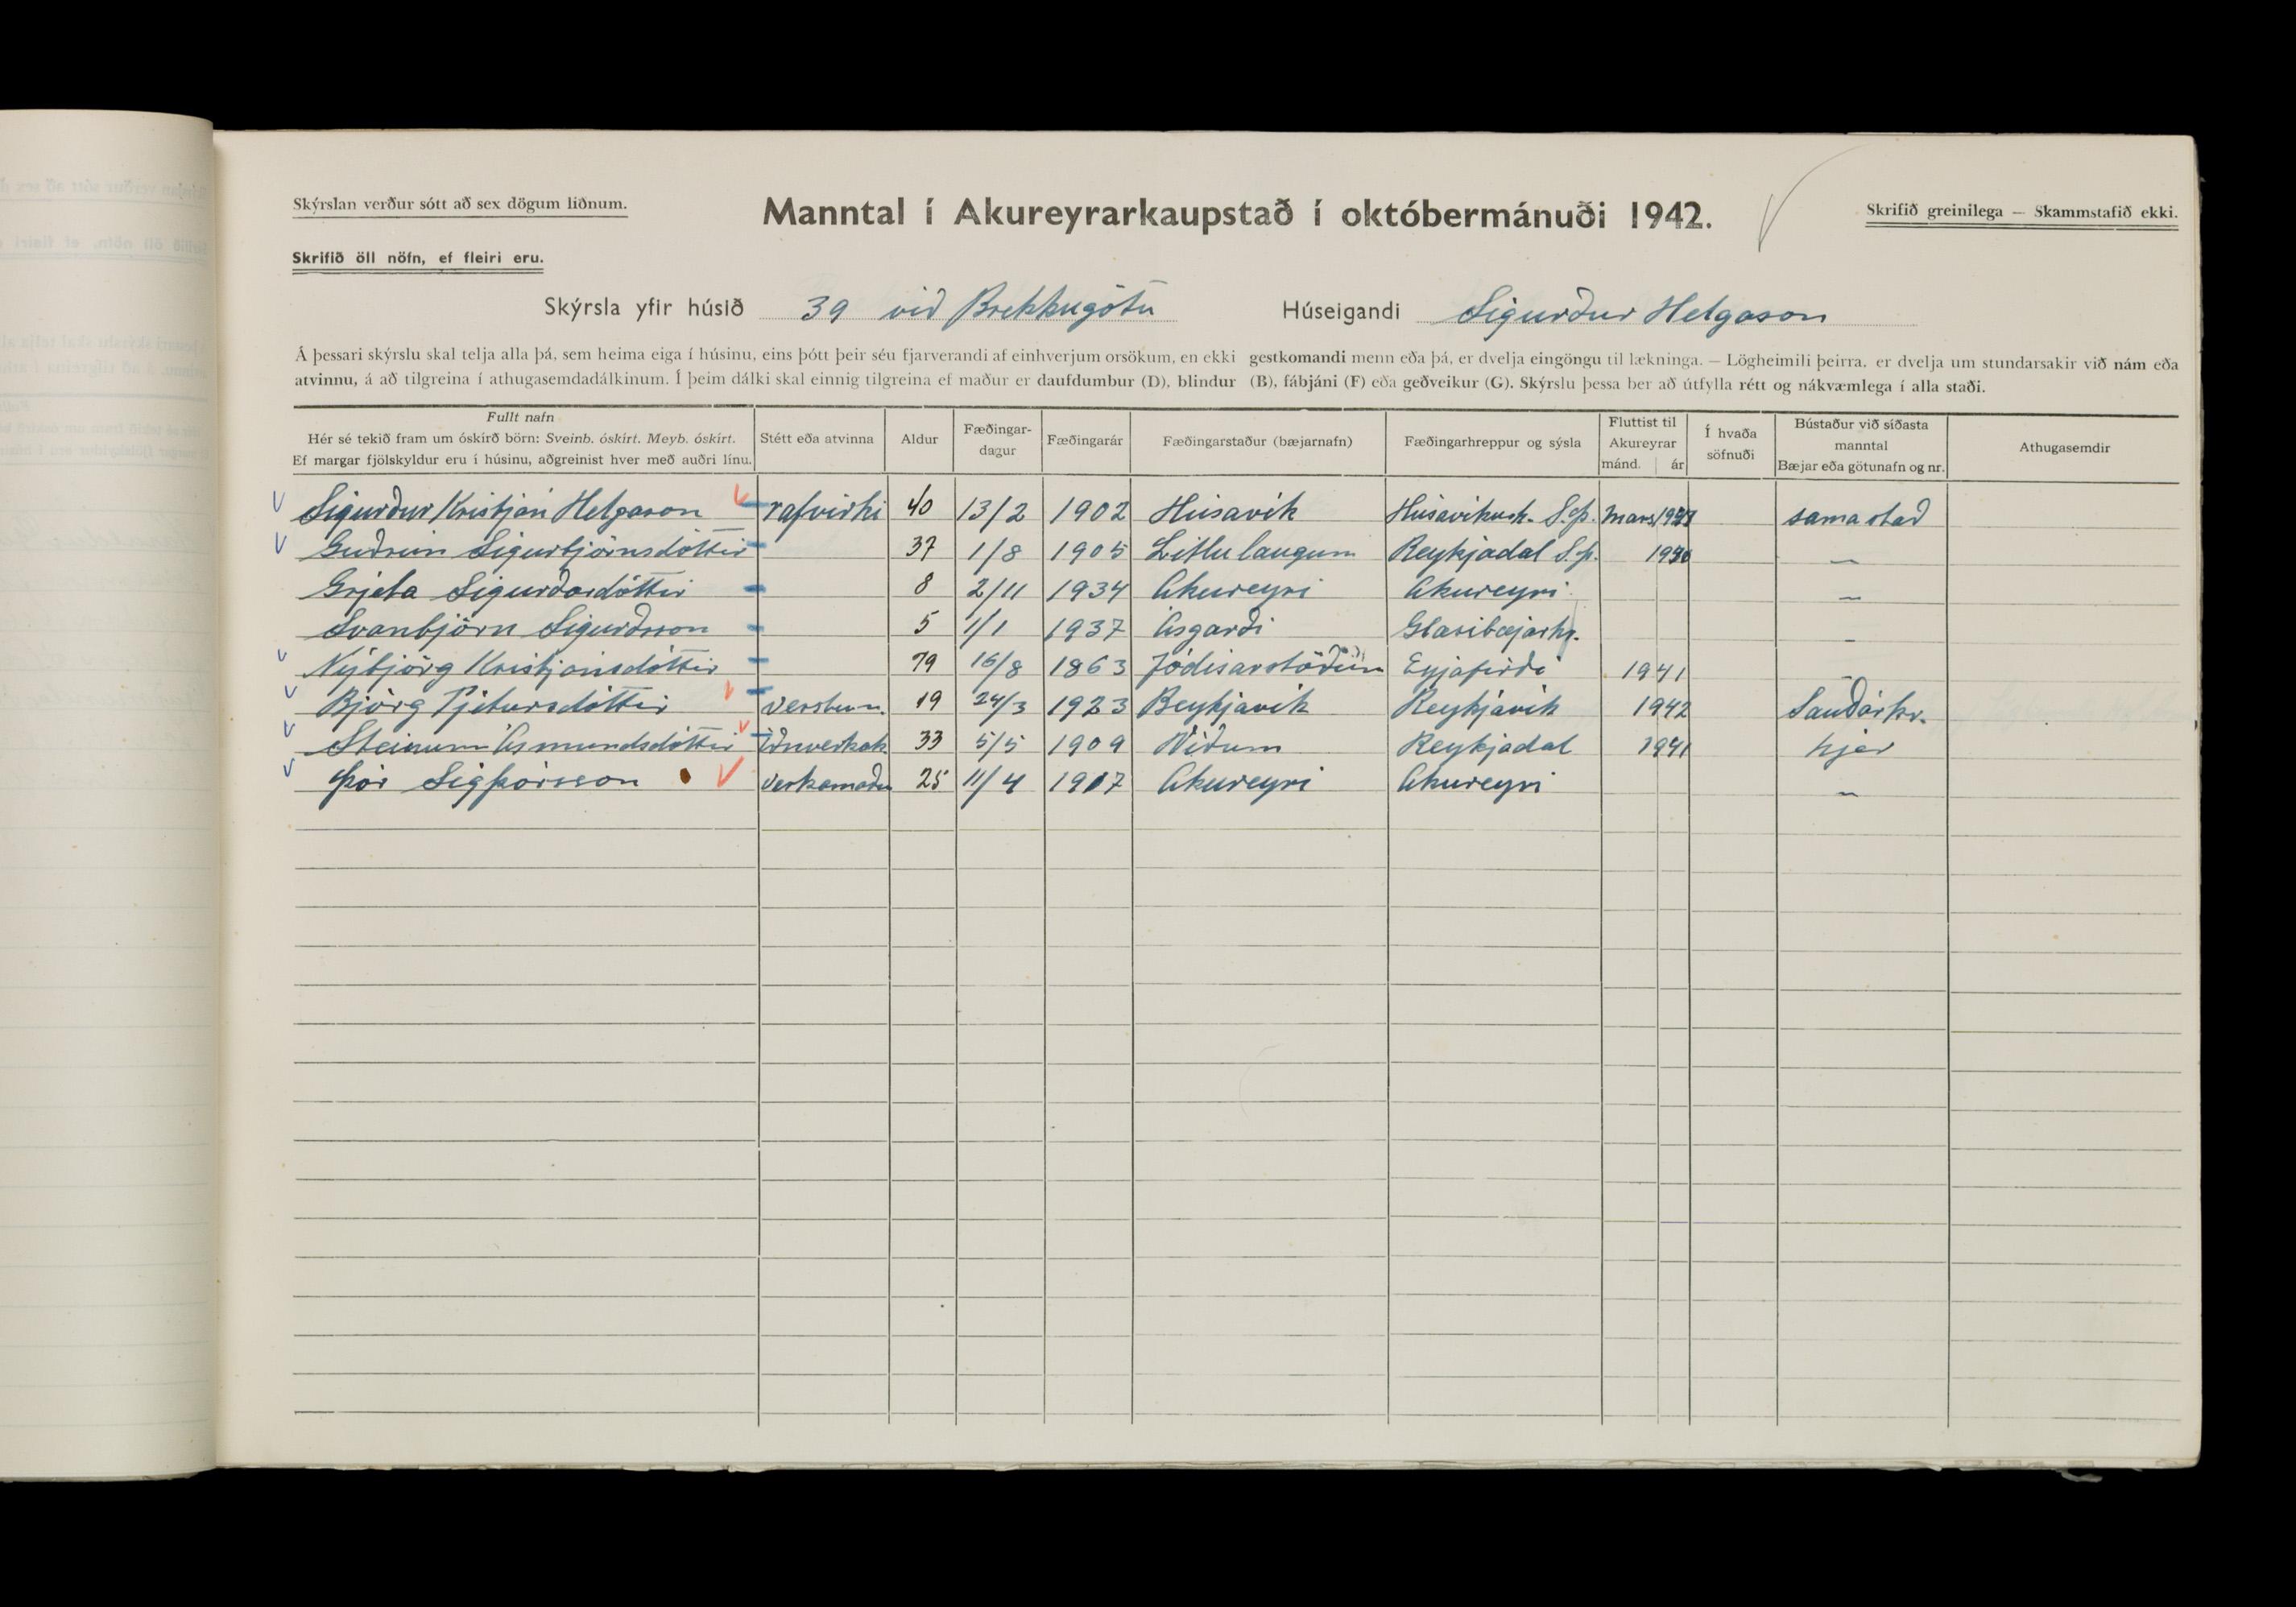 Skýrslan verður sótt að sex dögum liðnum.
Manntal í Akureyrarkaupstað í októbermánuði 1942.
Skrifið greinilega — Skammstafið ekki.
Skrifið öll nöfn, ef fleiri eru.
Skýrsla yfir húsið 39 við Brekkugötu Húseigandi Sigurður Helgason
Á þessari skýrslu skal telja alla þá, sem heima eiga í húsinu, eins þótt þeir séu fjarverandi af einhverjum orsökum, en ekki gestkomandi menn eða þá, er dvelja eingöngu til lækninga. — Lögheimili þeirra, er dvelja um stundarsakir við nám eða
atvinnu, á að tilgreina í athugasemdadálkinum. Í þeim dálki skal einnig tilgreina ef maður er daufdumbur (D), blindur (B), fábjáni (F) eða geðveikur (G). Skýrslu þessa ber að útfylla rétt og nákvæmlega í alla staði.
Fullt nafn
Hér sé tekið fram um óskírð börn: Sveinb. óskírt. Meyb. óskírt.
Ef margar fjölskyldur eru í húsinu, aðgreinist hver með auðri línu.
Stétt eða atvinna
Aldur
Fæðingar-
dagur
Fæðingarár
Fæðingarstaður (bæjarnafn)
Fæðingarhreppur og sýsla
Fluttist til
Akureyrar
mánd. ár
Í hvaða
söfnuði
Bústaður við síðasta
manntal
Bæjar eða götunafn og nr.
Athugasemdir
Sigurður Kristján Helgason rafvirki 40 13/2 1902 Húsavík Húsavíkurh. S.þ. Mars sama stað
Guðrún Sigurbjörnsdóttir 37 1/8 1905 Litlulaugum Reykjadal S.þ. 1930 —
Grjeta Sigurðardóttir 8 2/11 1934 Akureyri Akureyri —
Svanbjörn Sigurðsson 5 1/1 1937 Ásgarði Glæsibæjarhr. -
Nýbjörg Kristjánsdóttir 79 16/8 1863 Jódísarstöðum Eyjafirði 1941
Björg Pjetursdóttir 19 24/3 1923 Reykjavík Reykjavík 1942 Sauðárkr.
Steinunn Ásmundsdóttir Iðnverkak. 33 5/5 1909 Víðum Reykjadal 1941 hjer
Þór Sigþórsson verkamaður 25 11/4 1917 Akureyri Akureyri —